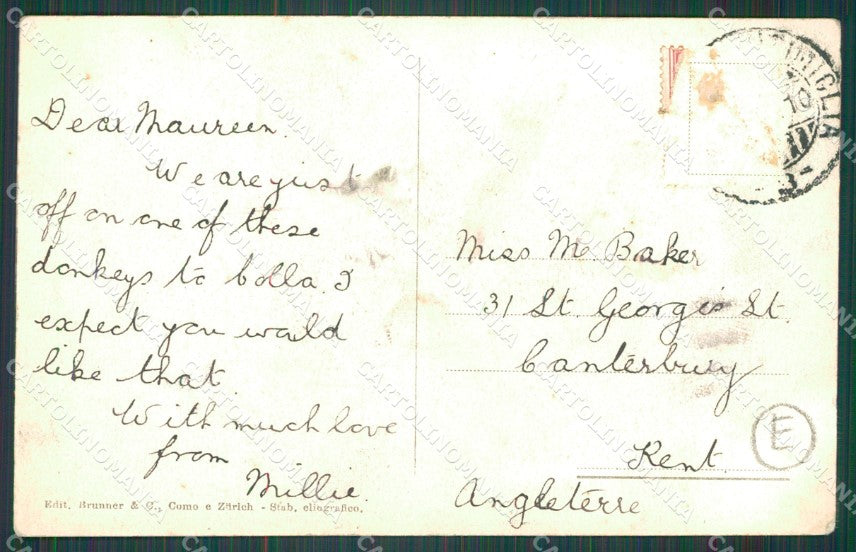 Dear Maureen.
We are just
off on one of these
donkeys to Colla. I
expect you would
like that
With much love
from
Millie.
Edit. Brunner & C., Como e Zürich - Stab. eliografico.
Miss M Baker
31 St. George's St.
Canterbury
Kent.
Angleterre
E
VENTIMIGLIA
10
CARTOLINOMANIA